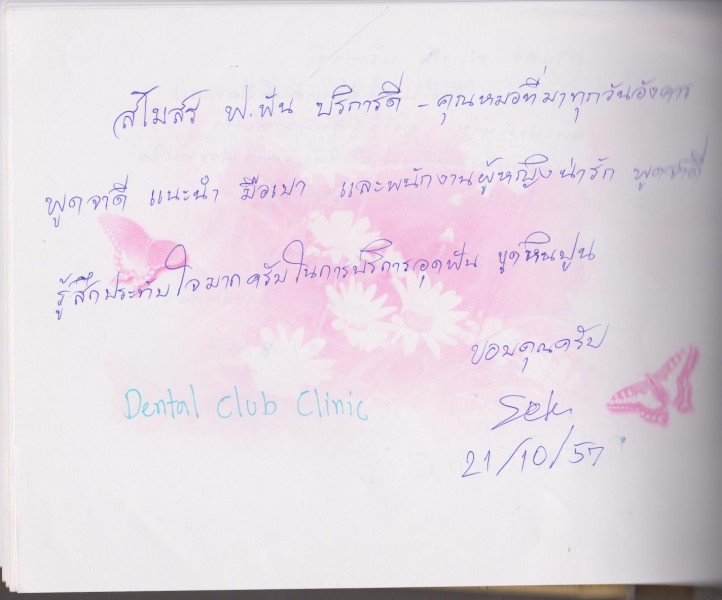 สโมสร ฟ.ฟัน บริการดี - คุณหมอที่มาทุกวันอังคาร
พูดจาดี แนะนำ มือเบา และพนักงานผู้หญิงน่ารัก พูดจาดี
รู้สึกประทับใจมากครับในการบริการอุดฟัน ขูดหินปูน
ขอบคุณครับ
Dental Club Clinic
21/10/57